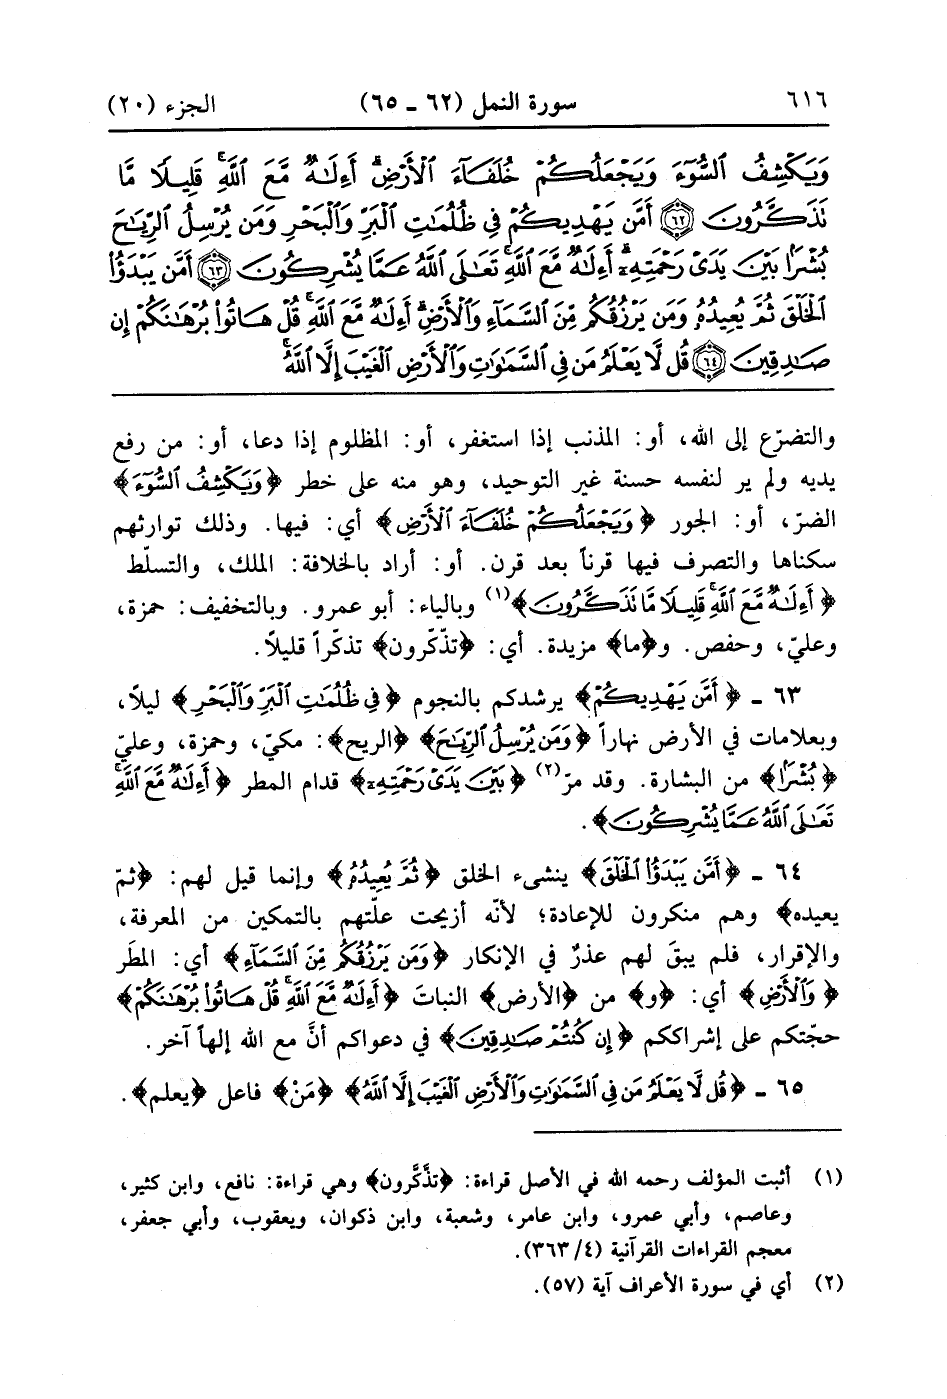 ٦١٦ سورة النمل (٦٢ ـ ٦٥) الجزء (٢٠)
وَيَكْشِفُ ٱلسُّوٓءَ وَيَجْعَلُكُمْ خُلَفَآءَ ٱلْأَرْضِ ۗ أَءِلَٰهٌ مَّعَ ٱللَّهِ ۚ قَلِيلًا مَّا
تَذَكَّرُونَ ﴿٦٢﴾ أَمَّن يَهْدِيكُمْ فِى ظُلُمَٰتِ ٱلْبَرِّ وَٱلْبَحْرِ وَمَن يُرْسِلُ ٱلرِّيَٰحَ
بُشْرًۢا بَيْنَ يَدَىْ رَحْمَتِهِۦٓ ۗ أَءِلَٰهٌ مَّعَ ٱللَّهِ ۚ تَعَٰلَى ٱللَّهُ عَمَّا يُشْرِكُونَ ﴿٦٣﴾ أَمَّن يَبْدَؤُا۟
ٱلْخَلْقَ ثُمَّ يُعِيدُهُۥ وَمَن يَرْزُقُكُم مِّنَ ٱلسَّمَآءِ وَٱلْأَرْضِ ۗ أَءِلَٰهٌ مَّعَ ٱللَّهِ ۚ قُلْ هَاتُوا۟ بُرْهَٰنَكُمْ إِن
صَٰدِقِينَ ﴿٦٤﴾ قُل لَّا يَعْلَمُ مَن فِى ٱلسَّمَٰوَٰتِ وَٱلْأَرْضِ ٱلْغَيْبَ إِلَّا ٱللَّهُ ۚ
والتضرّع إلى الله، أو: المذنب إذا استغفر، أو: المظلوم إذا دعا، أو: من رفع
يديه ولم ير لنفسه حسنة غير التوحيد، وهو منه على خطر ﴿وَيَكْشِفُ ٱلسُّوٓءَ﴾
الضرّ، أو: الجور ﴿وَيَجْعَلُكُمْ خُلَفَآءَ ٱلْأَرْضِ﴾ أي: فيها. وذلك توارثهم
سكناها والتصرف فيها قرناً بعد قرن. أو: أراد بالخلافة: الملك، والتسلّط
﴿أَءِلَٰهٌ مَّعَ ٱللَّهِ ۚ قَلِيلًا مَّا تَذَكَّرُونَ﴾(١) وبالياء: أبو عمرو. وبالتخفيف: حمزة،
وعليّ، وحفص. و﴿ما﴾ مزيدة. أي: ﴿تذّكّرون﴾ تذكّراً قليلاً.
٦٣ ـ ﴿أَمَّن يَهْدِيكُمْ﴾ يرشدكم بالنجوم ﴿فِى ظُلُمَٰتِ ٱلْبَرِّ وَٱلْبَحْرِ﴾ ليلاً،
وبعلامات في الأرض نهاراً ﴿وَمَن يُرْسِلُ ٱلرِّيَٰحَ﴾ ﴿الريح﴾: مكيّ، وحمزة، وعليّ
﴿بُشْرًۢا﴾ من البشارة. وقد مرّ(٢) ﴿بَيْنَ يَدَىْ رَحْمَتِهِۦٓ﴾ قدام المطر ﴿أَءِلَٰهٌ مَّعَ ٱللَّهِ ۚ
تَعَٰلَى ٱللَّهُ عَمَّا يُشْرِكُونَ﴾.
٦٤ ـ ﴿أَمَّن يَبْدَؤُا۟ ٱلْخَلْقَ﴾ ينشىء الخلق ﴿ثُمَّ يُعِيدُهُۥ﴾ وإنما قيل لهم: ﴿ثمّ
يعيده﴾ وهم منكرون للإعادة؛ لأنّه أزيحت علّتهم بالتمكين من المعرفة،
والإقرار، فلم يبقَ لهم عذرٌ في الإنكار ﴿وَمَن يَرْزُقُكُم مِّنَ ٱلسَّمَآءِ﴾ أي: المطَر
﴿وَٱلْأَرْضِ﴾ أي: ﴿و﴾ من ﴿الأرض﴾ النباتَ ﴿أَءِلَٰهٌ مَّعَ ٱللَّهِ ۚ قُلْ هَاتُوا۟ بُرْهَٰنَكُمْ﴾
حجّتكم على إشراككم ﴿إِن كُنتُمْ صَٰدِقِينَ﴾ في دعواكم أنَّ مع الله إلهاً آخر.
٦٥ ـ ﴿قُل لَّا يَعْلَمُ مَن فِى ٱلسَّمَٰوَٰتِ وَٱلْأَرْضِ ٱلْغَيْبَ إِلَّا ٱللَّهُ﴾ ﴿مَنْ﴾ فاعل ﴿يعلم﴾.
(١) أثبت المؤلف رحمه الله في الأصل قراءة: ﴿تذَّكَّرون﴾ وهي قراءة: نافع، وابن كثير،
وعاصم، وأبي عمرو، وابن عامر، وشعبة، وابن ذكوان، ويعقوب، وأبي جعفر،
معجم القراءات القرآنية (٤/٣٦٣).
(٢) أي في سورة الأعراف آية (٥٧).